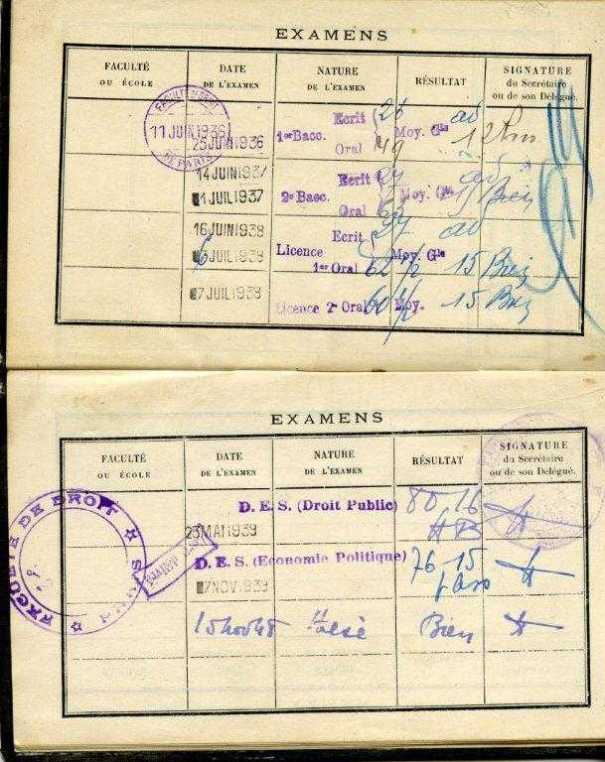 EXAMENS
FACULTÉ
OU ÉCOLE
DATE
DE L'EXAMEN
NATURE
DE L'EXAMEN
RÉSULTAT
SIGNATURE
du Secrétaire
ou de son Délégué.
11 JUIN 1936
25 JUIN 1936
1er Bacc. Ecrit 26 Moy. Gle ad
Oral 49
14 JUIN 1937
1 JUIL 1937
2e Bacc. Ecrit Moy. Gle 15 Bien
Oral
16 JUIN 1938
JUIL 1938
Licence Ecrit 37 Moy. Gle ad
1er Oral 62 1/2 15 Bien
7 JUIL 1938
Licence 2e Oral 60 1/2 Moy. 15 Bien
EXAMENS
FACULTÉ
OU ÉCOLE
DATE
DE L'EXAMEN
NATURE
DE L'EXAMEN
RÉSULTAT
SIGNATURE
du Secrétaire
ou de son Délégué.
FACULTÉ DE DROIT
D. E. S. (Droit Public) 80-16
23 MAI 1939
D. E. S. (Economie Politique) 76-15
7 NOV. 1939
15 nov 48 Thèse Bien